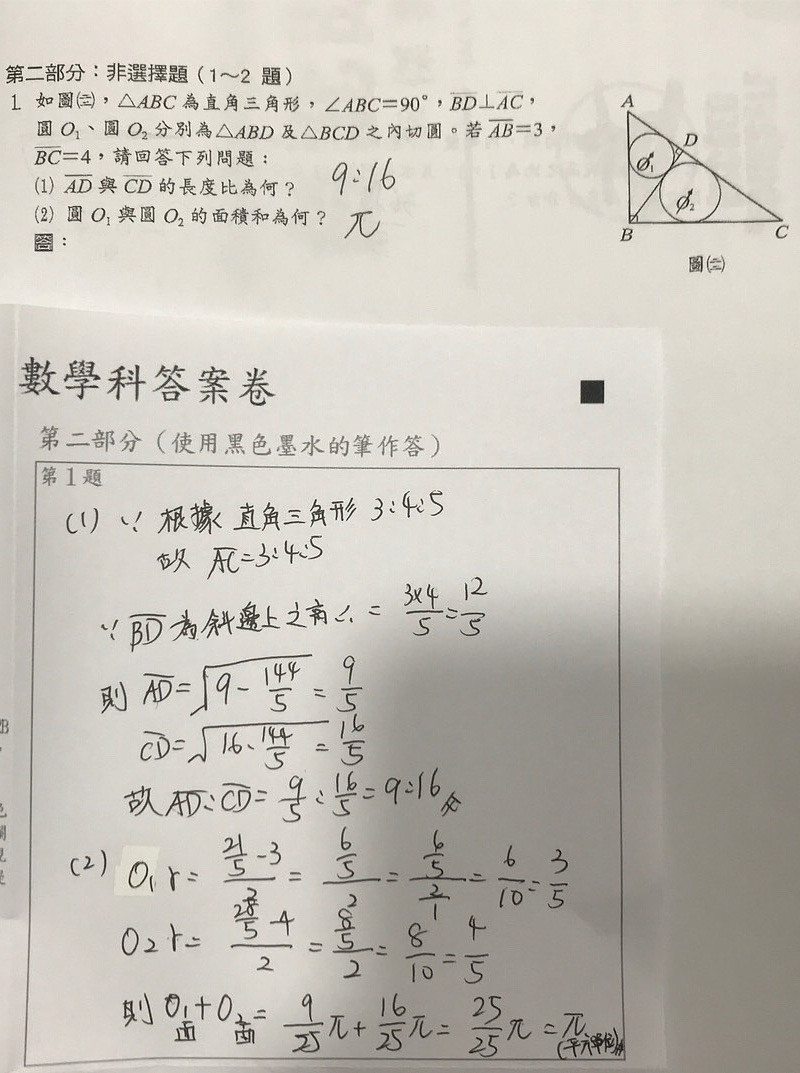 第二部分：非選擇題（1～2 題）
1. 如圖㈡，△ABC 為直角三角形，∠ABC=90°，BD⊥AC，
圓 O₁、圓 O₂ 分別為△ABD 及△BCD 之內切圓。若 AB=3，
BC=4，請回答下列問題：
⑴ AD 與 CD 的長度比為何？ 9:16
⑵ 圓 O₁ 與圓 O₂ 的面積和為何？ π
答：
A
D
O₁
O₂
B
C
數學科答案卷
第二部分（使用黑色墨水的筆作答）
第1題
(1) ∵ 根據 直角三角形 3:4:5
故 AC=3:4:5
∵ BD 為斜邊上之高 ∴ = 3×4/5 = 12/5
則 AD = √(9 - 144/5) = 9/5
CD = √(16 - 144/5) = 16/5
故 AD:CD = 9/5 : 16/5 = 9:16
(2) O₁ r = (21/5 - 3)/2 = (6/5)/2 = (6/5)/(2/1) = 6/10 = 3/5
O₂ r = (28/5 - 4)/2 = (8/5)/2 = 8/10 = 4/5
則 O₁面 + O₂面 = 9/25 π + 16/25 π = 25/25 π = π (平方單位)